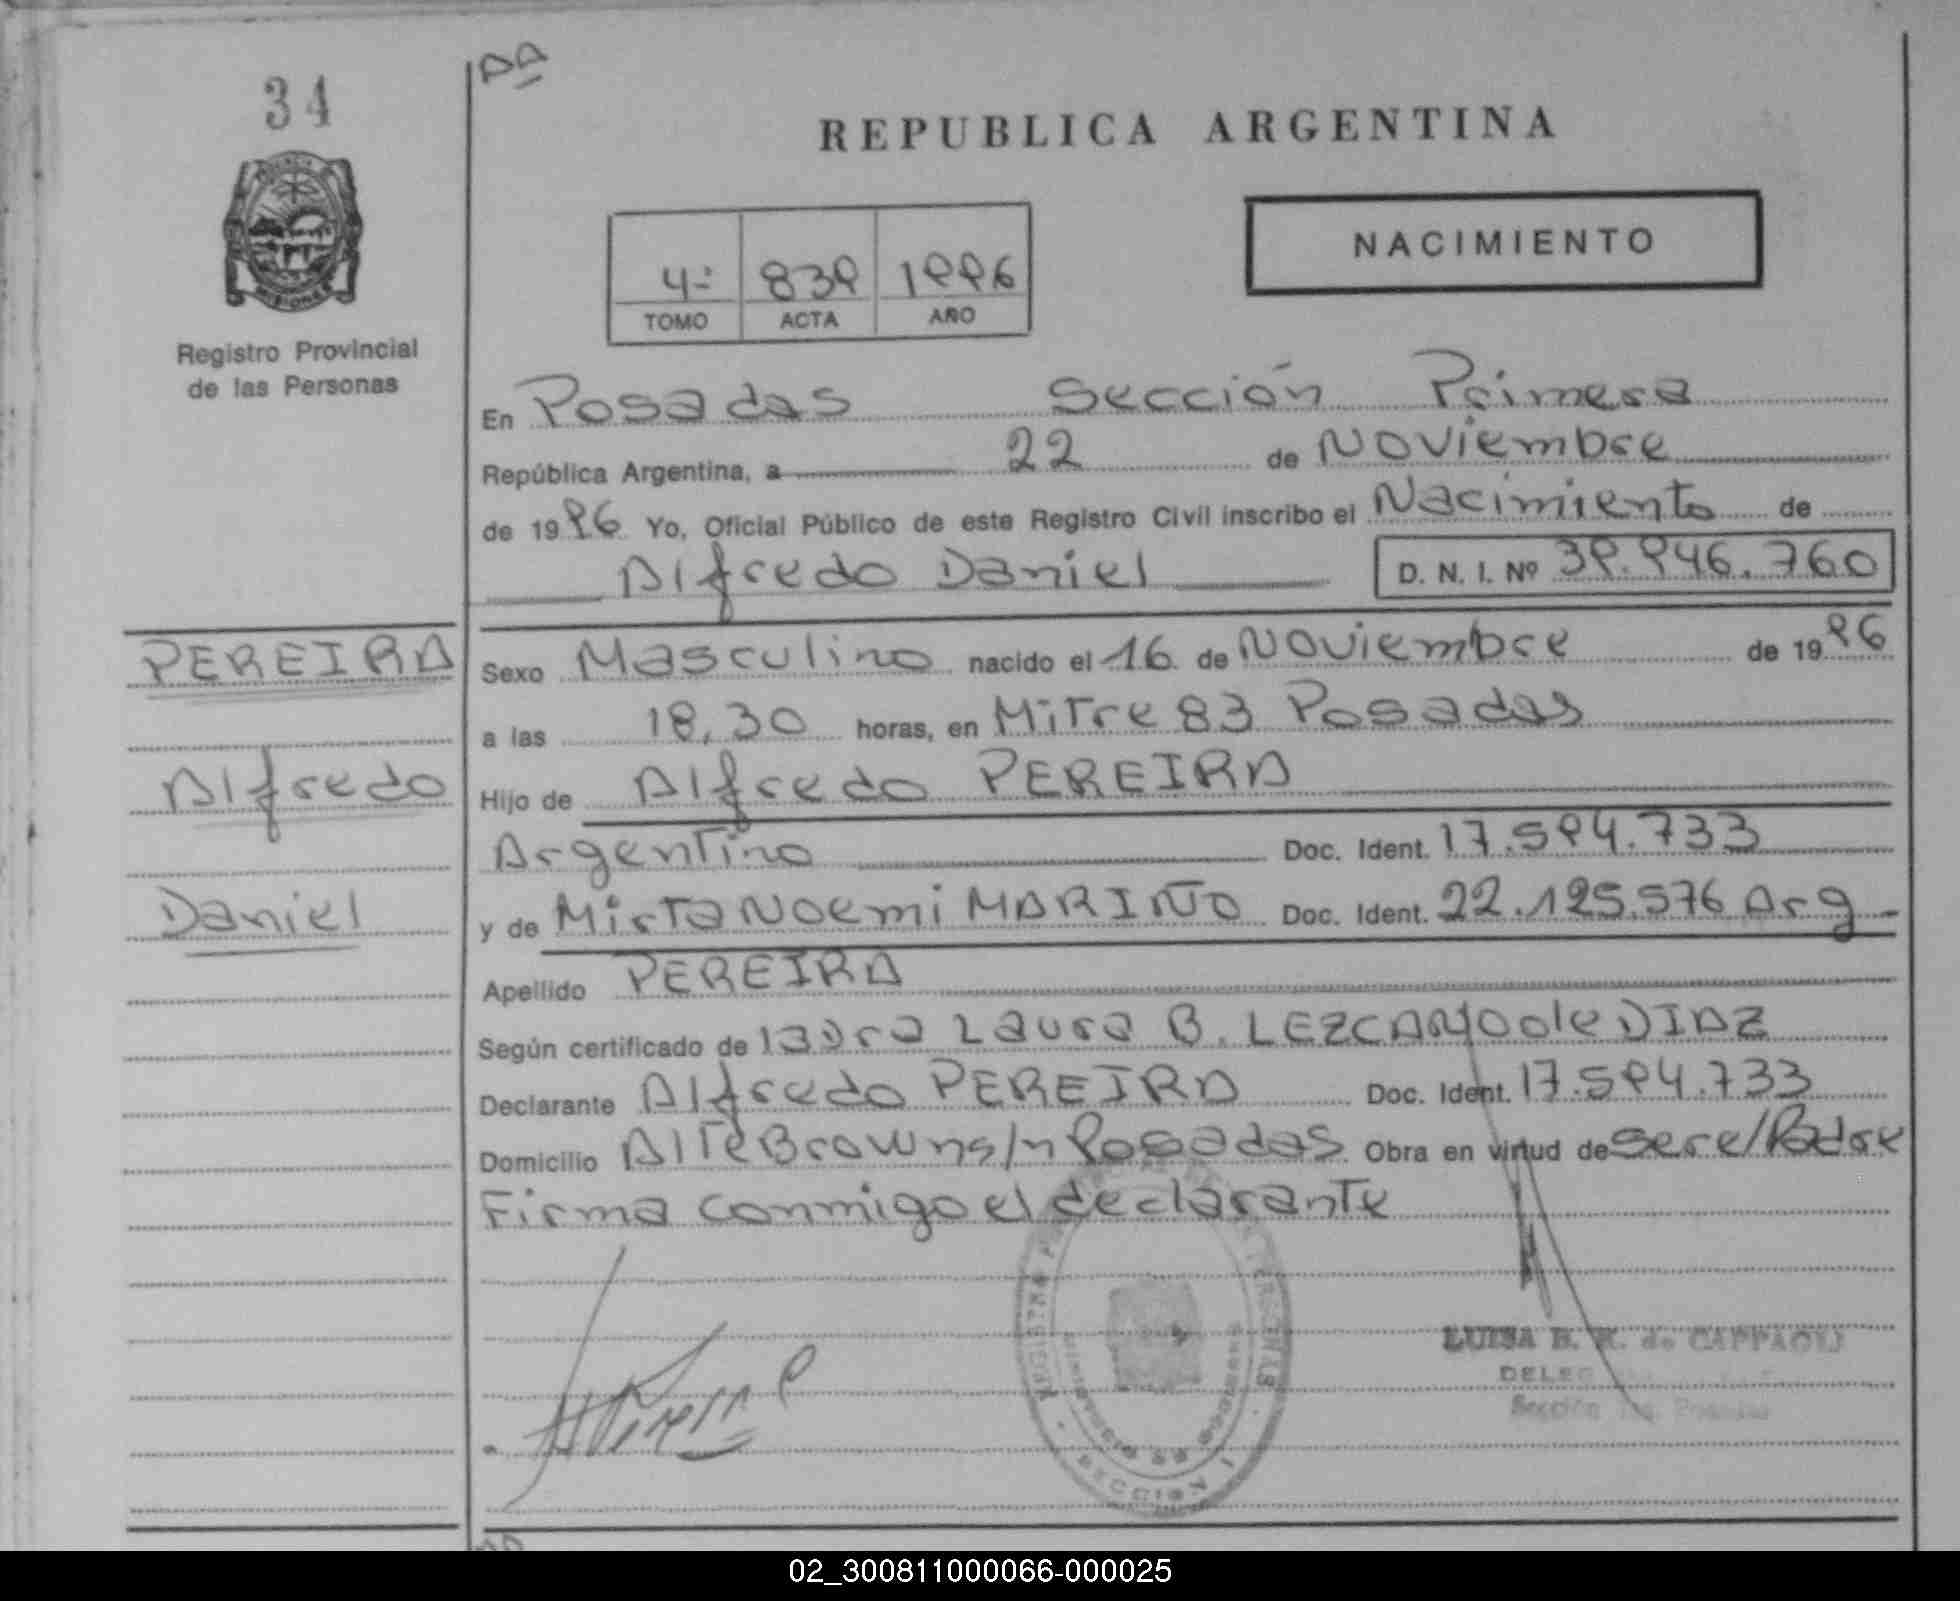 34
REPUBLICA ARGENTINA
NACIMIENTO
4º 839 1996
TOMO ACTA AÑO
Registro Provincial
de las Personas
En Posadas Sección Primera
República Argentina, a 22 de Noviembre
de 1996 Yo, Oficial Público de este Registro Civil inscribo el Nacimiento de
Alfredo Daniel D. N. I. Nº 39.946.760
PEREIRA
Sexo Masculino nacido el 16 de Noviembre de 1996
a las 18,30 horas, en Mitre 83 Posadas
Alfredo
Hijo de Alfredo PEREIRA
Argentino Doc. Ident. 17.594.733
Daniel
y de Mirta Noemi MARIÑO Doc. Ident. 22.125.576 Arg
Apellido PEREIRA
Según certificado de la Dra Laura B. LEZCANO de DIAZ
Declarante Alfredo PEREIRA Doc. Ident. 17.594.733
Domicilio Alte Brown s/n Posadas Obra en virtud de ser e/Padre
Firma conmigo el declarante
LUISA B. R. de
Sección
02_300811000066-000025